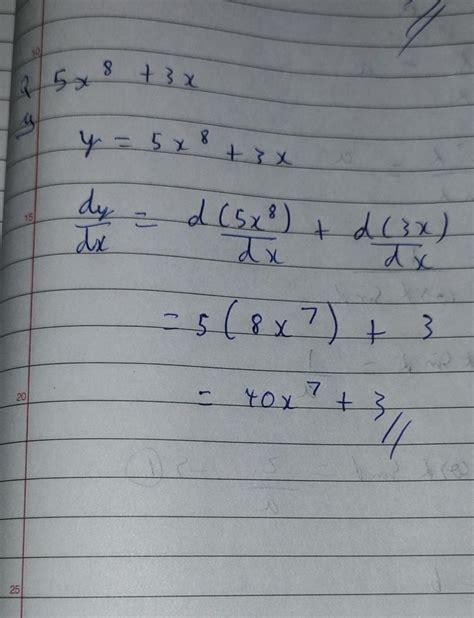 Q 5x⁸ + 3x
y = 5x⁸ + 3x
dy/dx = d(5x⁸)/dx + d(3x)/dx
= 5(8x⁷) + 3
= 40x⁷ + 3 //